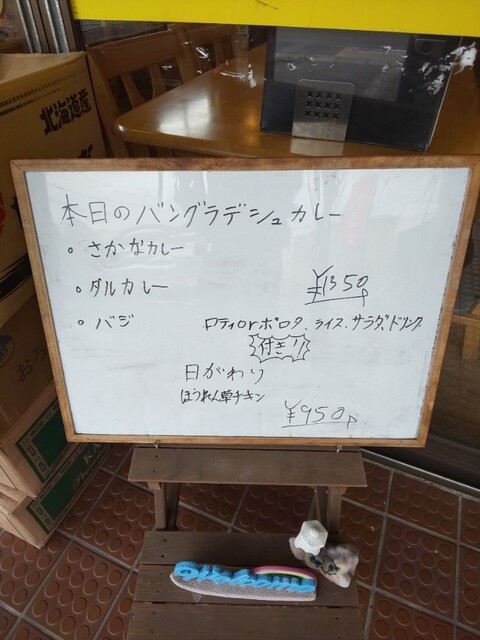 北海道産
本日のバングラデシュカレー
。さかなカレー
。ダルカレー
¥1350
。バジ
ロティorポロタ、ライス、サラダ、ドリンク
付き!
日がわり
ほうれん草チキン
¥950